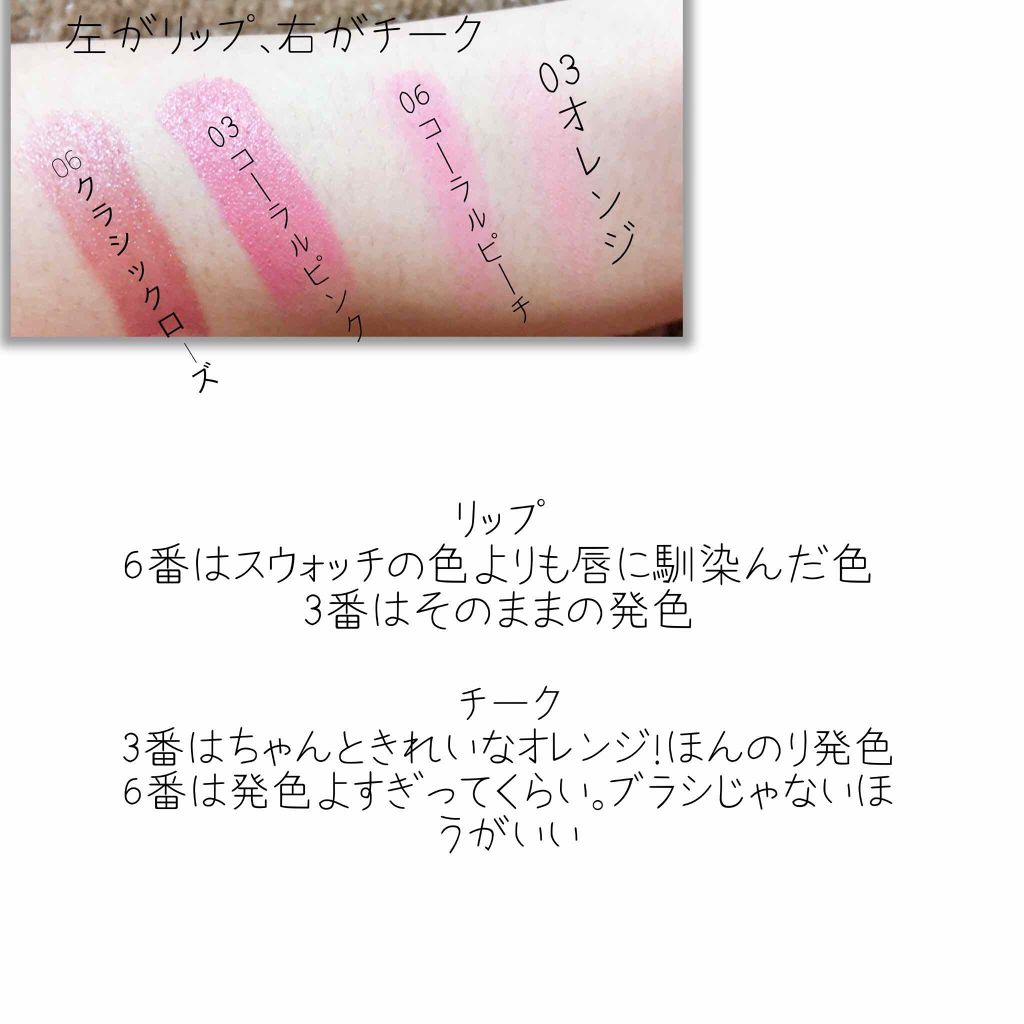 左がリップ、右がチーク
06 クラシックローズ
03 コーラルピンク
06 コーラルピーチ
03 オレンジ
リップ
6番はスウォッチの色よりも唇に馴染んだ色
3番はそのままの発色
チーク
3番はちゃんときれいなオレンジ!ほんのり発色
6番は発色よすぎってくらい。ブラシじゃないほ
うがいい